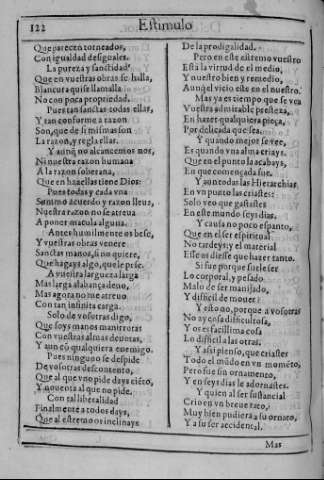 122
Estimulo
Que parecen torneados,
Con igualdad desiguales.
La pureza y sanctidad
Que en vuestras obras se halla,
Blancura quise llamalla
No con poca propriedad.
Pues tan sanctas todas ellas,
Y tan conforme a razon
Son, que de si mismas son
La razon, y regla ellas.
Y aunq̃ no alcancemos nos,
Ni nuestra razon humana
A la razon soberana,
Que en haz ellas tiene Dios:
Pues todas y cada vna
Sanimo acuerdo y razon lleua,
Nuestra razon no se atreua
A poner macula alguna.
Antes humilmente os bese,
Y vuestras obras venere
Sanctas manos, si no quiere,
Que haga yo algo, que le pese.
A vuestra largueza larga
Mas larga alabança deuo,
Mas agora no me atreuo
Con tan infinita carga.
Solo de vosotras digo,
Que soys manos manirrotas
Con vuestras almas deuotas,
Y aun cõ qualquiera enemigo.
Pues ninguno se despide
De vosotras descontento,
Que al que vno pide days ciẽto,
Y nouenta al que no pide.
Con tal liberalidad
Finalmente a todos days,
Que al estremo os inclinays
De la prodigalidad.
Pero en este estremo vuestro
Esta la virtud de el medio,
Y nuestro bien y remedio,
Aunq̃ el vicio este en el nuestro.
Mas ya es tiempo que se vea
Vuestra admirable presteza,
En hazer qualquiera pieça,
Por delicada que sea.
Y quando mejor se vee,
Es quando vna alma criays,
Que en el punto la acabays,
En que començada fue.
Y aun todas las Hierarchias
En vn punto las criastes:
Solo veo que gastastes
En este mundo seys dias.
Y causa no poco espanto,
Que en el ser espiritual
No tardeys: y el material
Esse os diesse que hazer tanto.
Si fue porque suele ser
Lo corporal, y pesado
Malo de ser manijado,
Y dificil de mouer?
Y esto no, porque a vosotras
No ay cosa dificultosa,
Y os es facillima cosa
Lo dificil a las otras.
Y assi pienso, que criastes
Todo el mũdo en vn momẽto,
Pero fue sin ornamento,
Y en seys dias le adornastes.
Y quien al ser sustancial
Crio en vn breue rato,
Muy bien pudiera a su ornato,
Y a su ser accidencal.
Mas